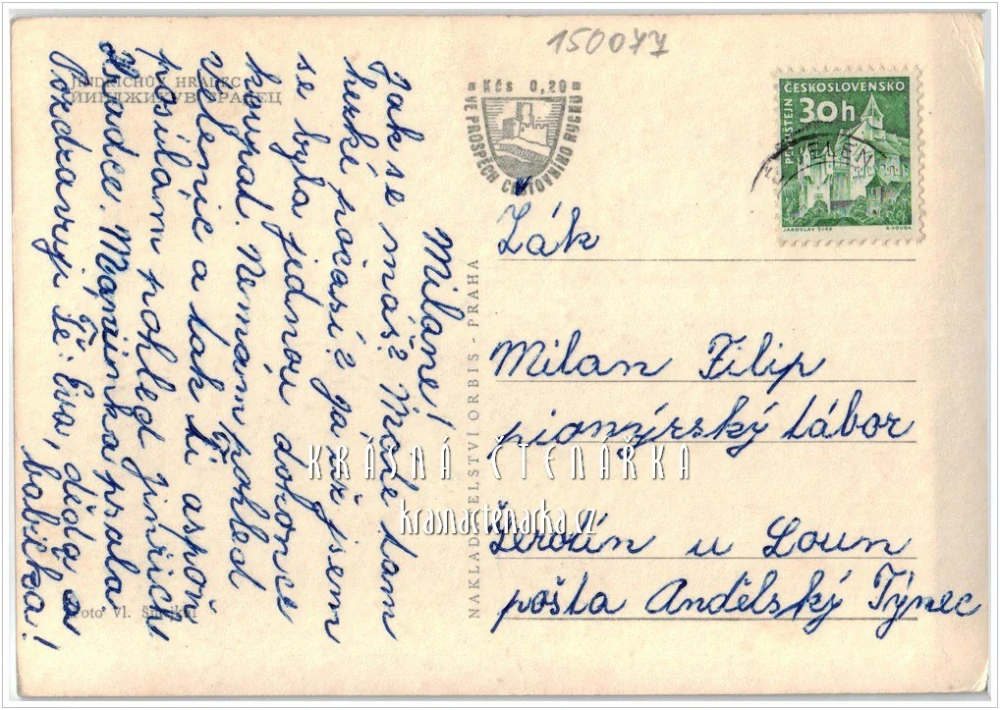 150077
JINDŘICHŮV HRADEC
ЙИНДРЖИХУВ ГРАДЕЦ
Kčs 0,20
VE PROSPĚCH CESTOVNÍHO RUCHU
ČESKOSLOVENSKO
30h
PERNŠTEJN
JAROSLAV ŠVÁB
Milane!
Jak se máš? Máte tam
hezké počasí? Já už jsem
se byla jednou dokonce
koupat. Nemam pohled
z Telenic a tak Ti aspoň
posílám pohled Jindřich.
Hradce. Maminka prala
Pozdravují Tě: Eva, děda a
babička!
Foto Vl.
NAKLADATELSTVÍ ORBIS - PRAHA
Žák
Milan Filip
pionýrský tábor
Žerotín u Loun
pošta Andělský Týnec
KRÁSNÁ ČTENÁŘKA
krasnactenarka.cz